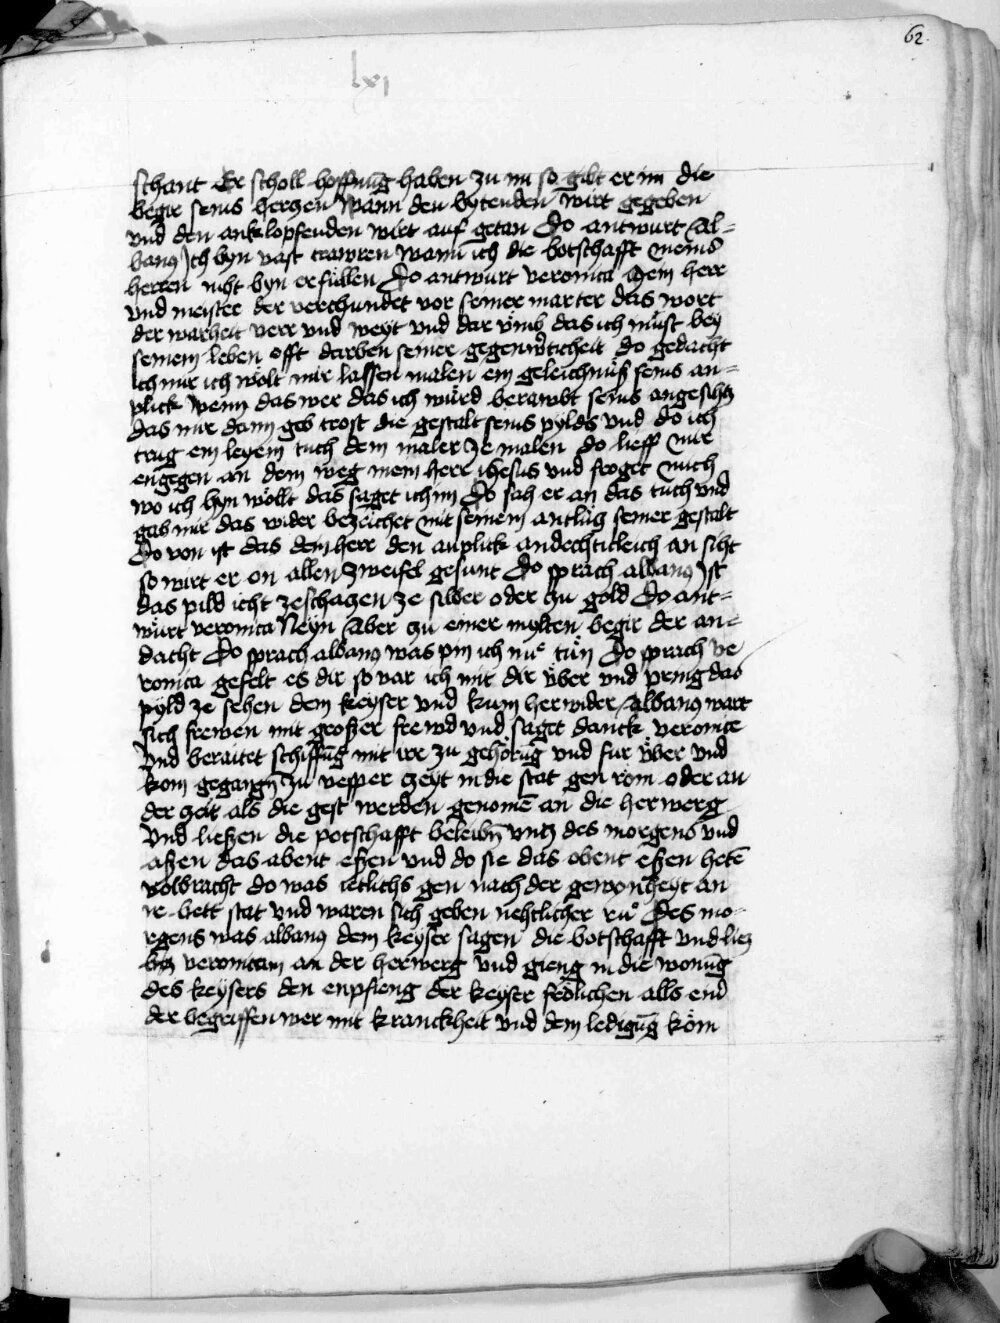 62.
lxj
schant Er scholl hoffnūg haben zu im so gibt er im die
begir seins herczen Wann den bytenden wirt gegeben
vnd den anklopfenden wirt auf getan Do antwurt Al-
banus Ich byn vast trawren wann ich die botschafft meins
herren niht byn erfüllen Do antwurt veronica Mein herr
vnd meister der verchundet vor seiner marter das wort
der warheit verr vnd weyt vnd dar vmb das ich müst bey
seinem leben offt darben seiner gegenwrticheit do gedacht
ich mir ich wölt mir lassen malen ein geleichnüß seins an-
plick Wenn das wer das ich würd berawbt seins angesichtz
das mir dann geb trost die gestalt seins pylds vnd do ich
trug ein leyein tuch dem maler ze malen do lieff mir
engegen an dem weg mein herr ihesus vnd froget mich
wo ich hyn wöllt das saget ich im Do sah er an das tuch vnd
gab mir das wider bezeichet mit seinem antlütz seiner gestalt
Do von ist das dein herr den anplick andechticleich an siht
so wirt er on allen zweifel gesunt Do sprach albanus Ist
das pild icht zeschaczen ze silber oder zu gold Do ant-
würt veronica Neyn Aber zu einer mylten begir der an-
dacht Do sprach albanus was pin ich nu tün Do sprach ve
ronica gefelt es dir so var ich mit dir vber vnd pring das
pyld ze sehen dem keyser vnd kum her wider Albanus wart
sich frewen mit großer frewd vnd saget danck veronice
Vnd beraitet schiffūg mit irr zu gehörūg vnd fur vber vnd
kom gegangn̄ zu vesper zeyt in die stat gen rom oder an
der zeit als die gest werden genomē an die herwerg
Vnd ließen die potschafft beleibn̄ vntz des morgens vnd
aßen das abent eßen vnd do sie das obent eßen hetē
volbracht do was ietlichs gen nach der gewonheyt an
ir bett stat vnd waren sich geben nehtlicher ru Des mo-
rgens was albanus dem keyser sagen die botschafft vnd liez
veronicam an der herwerg vnd gieng in die wonūg
des keysers den enpfieng der keyser frölichen alls ein
der begriffen wer mit kranckheit vnd dem ledigūg köm